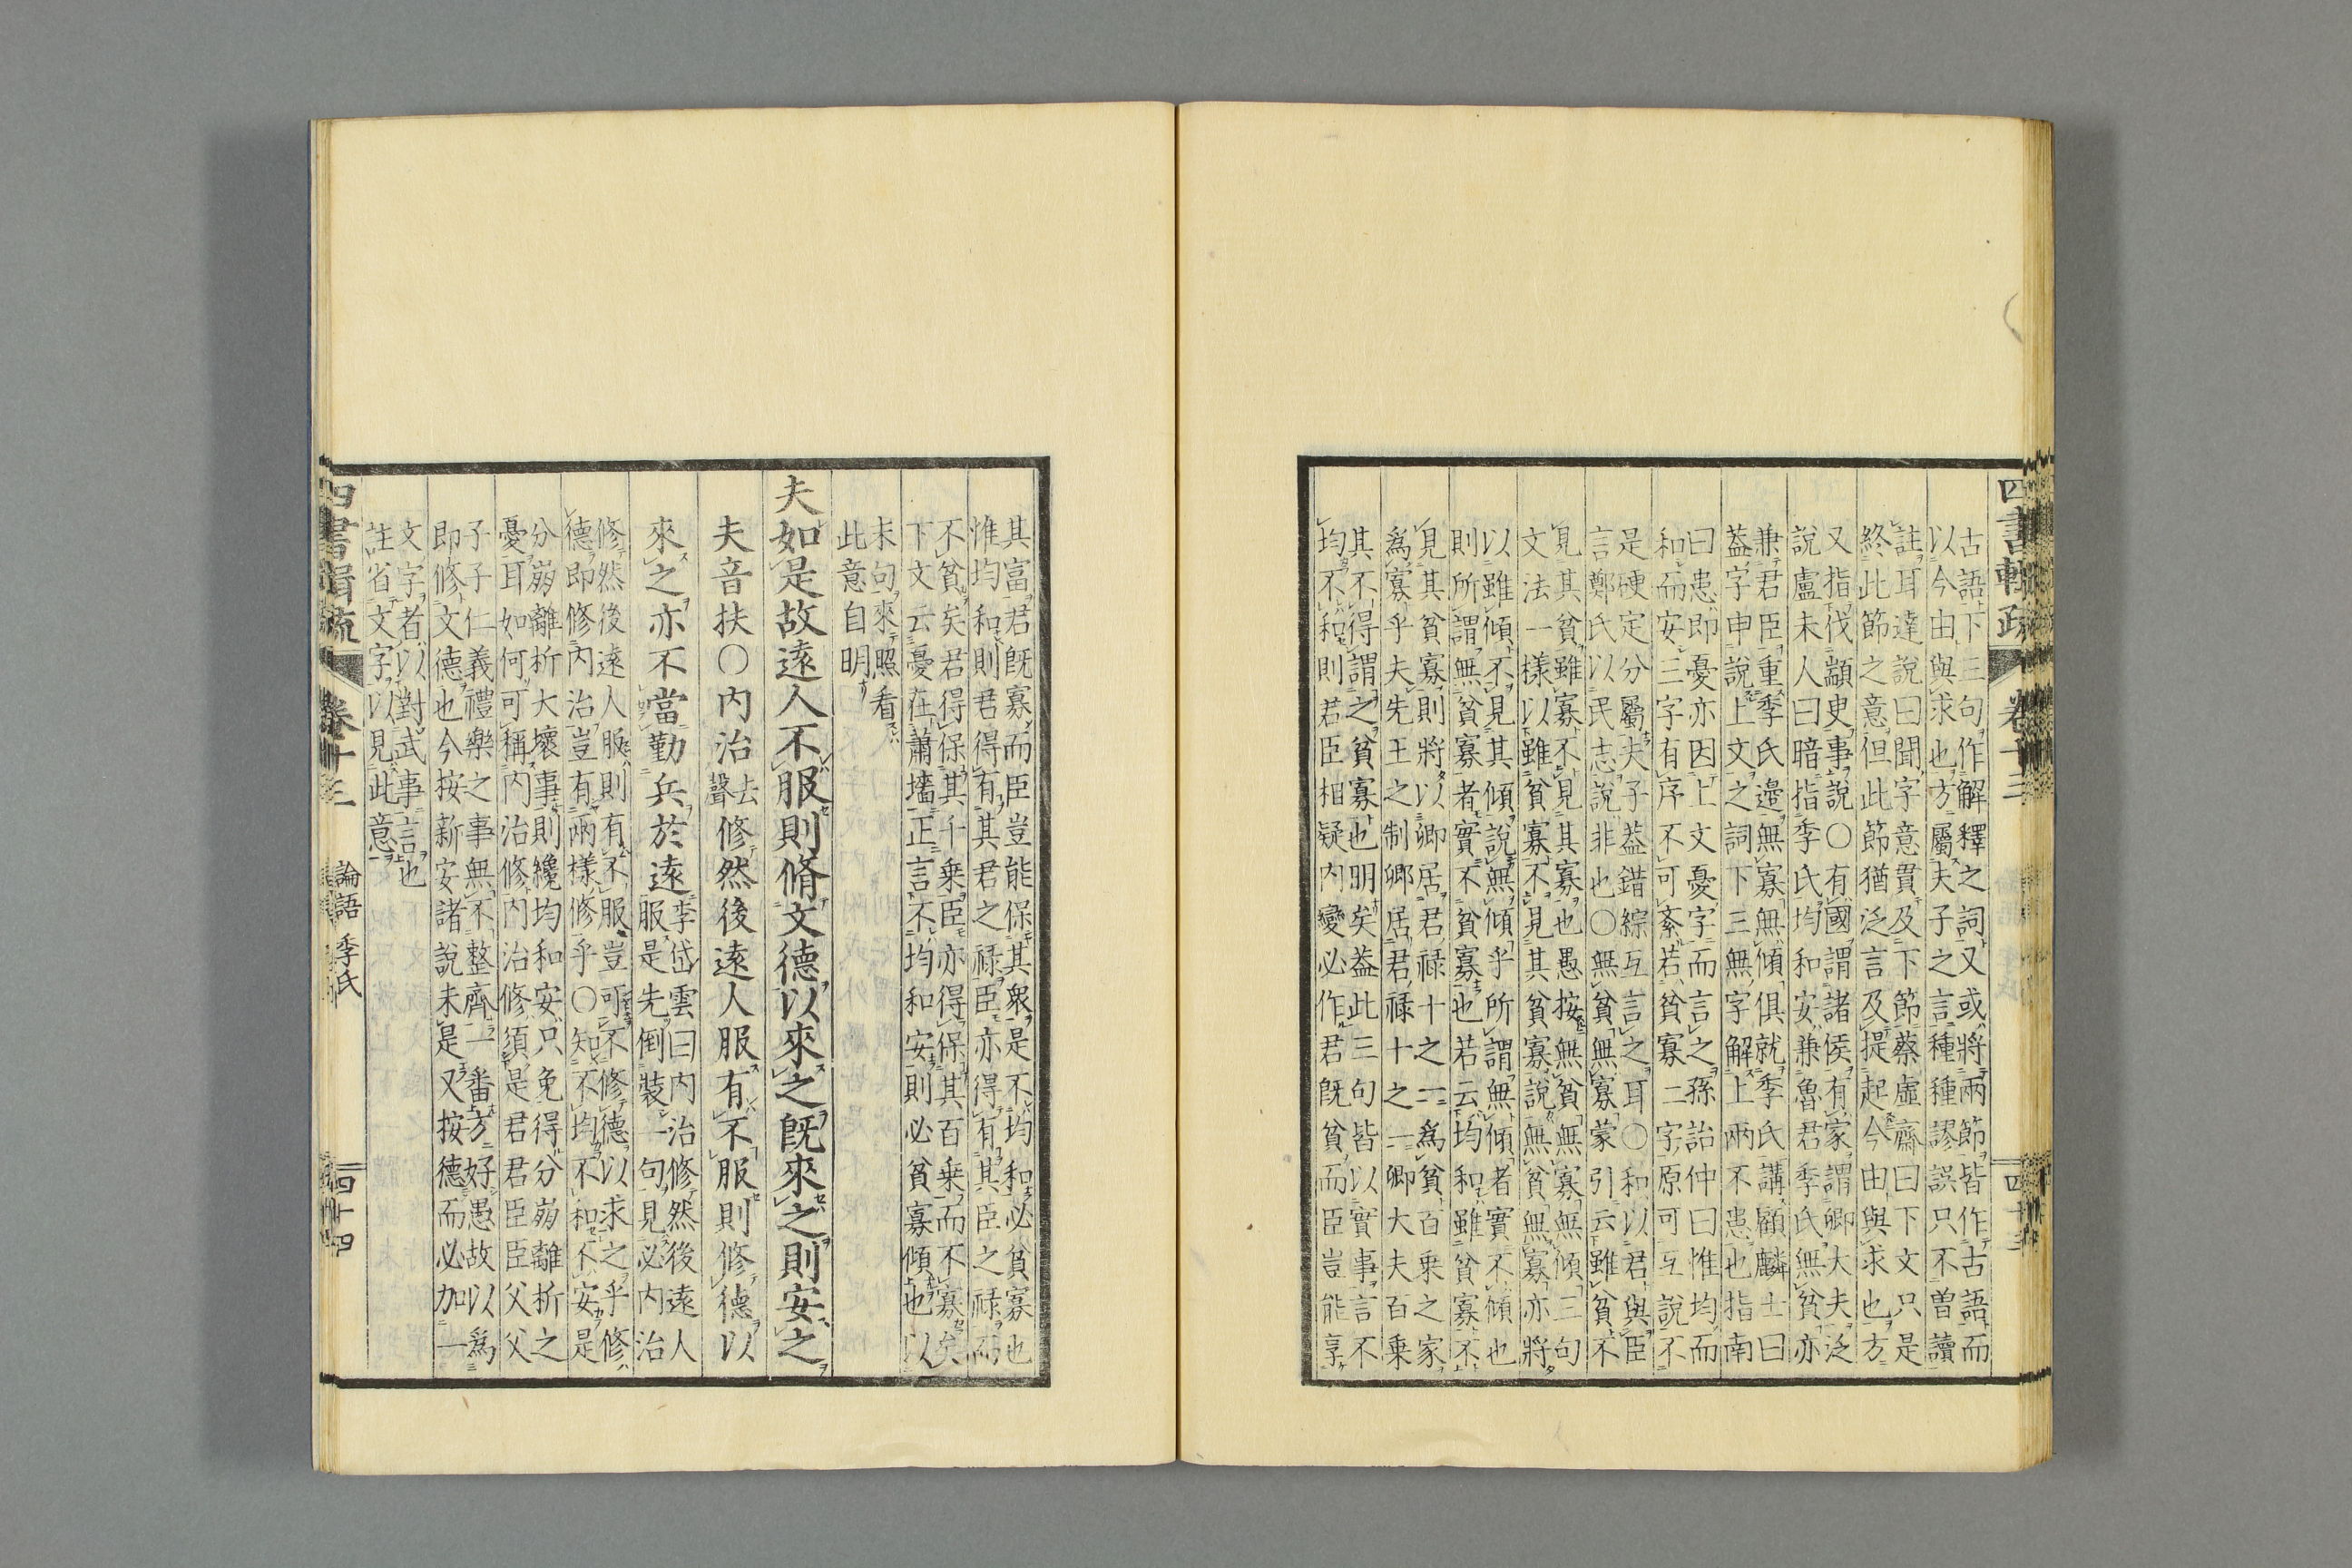 古語下三句作解釋之詞又或將兩節皆作古語而
以今由與求也方屬夫子之言種種謬誤只不曽讀
註耳達説曰聞字意貫及下節蔡虛齋曰下文只是
終此節之意但此節猶泛言及提起今由與求也方
又指伐顓臾事説〇有國謂諸侯有家謂卿大夫泛
説盧未人曰暗指季氏均和安兼魯君季氏無貧亦
兼君臣重季氏邉無寡無傾俱就季氏講顧麟士曰
葢字申説上文之詞下三無字解上兩不患也指南
曰患即憂亦因上文憂字而言之孫詒仲曰惟均而
和而安三字有序不可紊若貧寡二字原可互説不
是硬定分屬夫子葢錯綜互言之耳〇和以君與臣
言鄭氏以民志説非也〇無貧無寡蒙引云雖貧不
見其貧雖寡不見其寡也愚按無貧無寡無傾三句
文法一樣以雖貧寡不見其貧寡説無貧無寡亦將
以雖傾不見其傾説無傾乎所謂無傾者實不傾也
則所謂無貧寡者實不貧寡也若云均和雖貧寡不
見其貧寡則將以卿居君禄十之二爲貧百乗之家
爲寡乎夫先王之制卿居君禄十之一卿大夫百乗
其不得謂之貧寡也明矣葢此三句皆以實事言不
均不和則君臣相疑内變必作君既貧而臣豈能享
四書輯疏 卷十三 四十三
其富君既寡而臣豈能保其衆是不均和必貧寡也
惟均和則君得有其君之禄臣亦得有其臣之禄而
不貧矣君得保其千乗臣亦得保其百乗而不寡矣
下文云憂在蕭墻正言不均和安則必貧寡傾也以
末句來照看
此意自明
夫如是故遠人不服則脩文德以來之既來之則安之
夫音扶〇内治去聲修然後遠人服有不服則修德以
來之亦不當勤兵於遠李岱雲曰内治修然後遠人
服是先倒裝一句見必内治
修然後遠人服則有不服豈可不修德以求之乎修
德即修内治豈有兩樣修乎〇知不均不和不安是
分崩離析大壞事則纔均和安只免得分崩離折之
憂耳如何可稱内治修内治修須是君君臣臣父父
子子仁義禮樂之事無不整齊一番方好愚故以爲
即修文德也今按新安諸説未是又按德而必加一
文字者以對武事言也
註省文字以見此意
四書輯疏 卷十三 論語 季氏 四十四